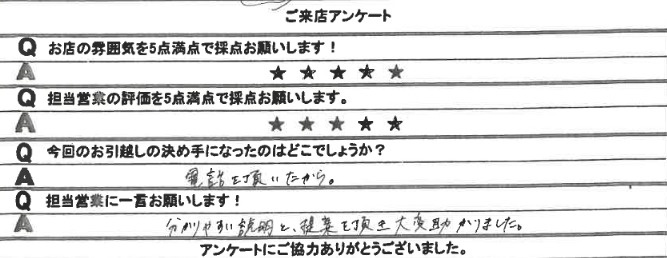 ご来店アンケート
Q お店の雰囲気を5点満点で採点お願いします！
A ★ ★ ★ ★ ★
Q 担当営業の評価を5点満点で採点お願いします。
A ★ ★ ★ ★ ★
Q 今回のお引越しの決め手になったのはどこでしょうか？
A 電話を頂いたから。
Q 担当営業に一言お願いします！
A 分かりやすい説明と、提案を頂き大変助かりました。
アンケートにご協力ありがとうございました。